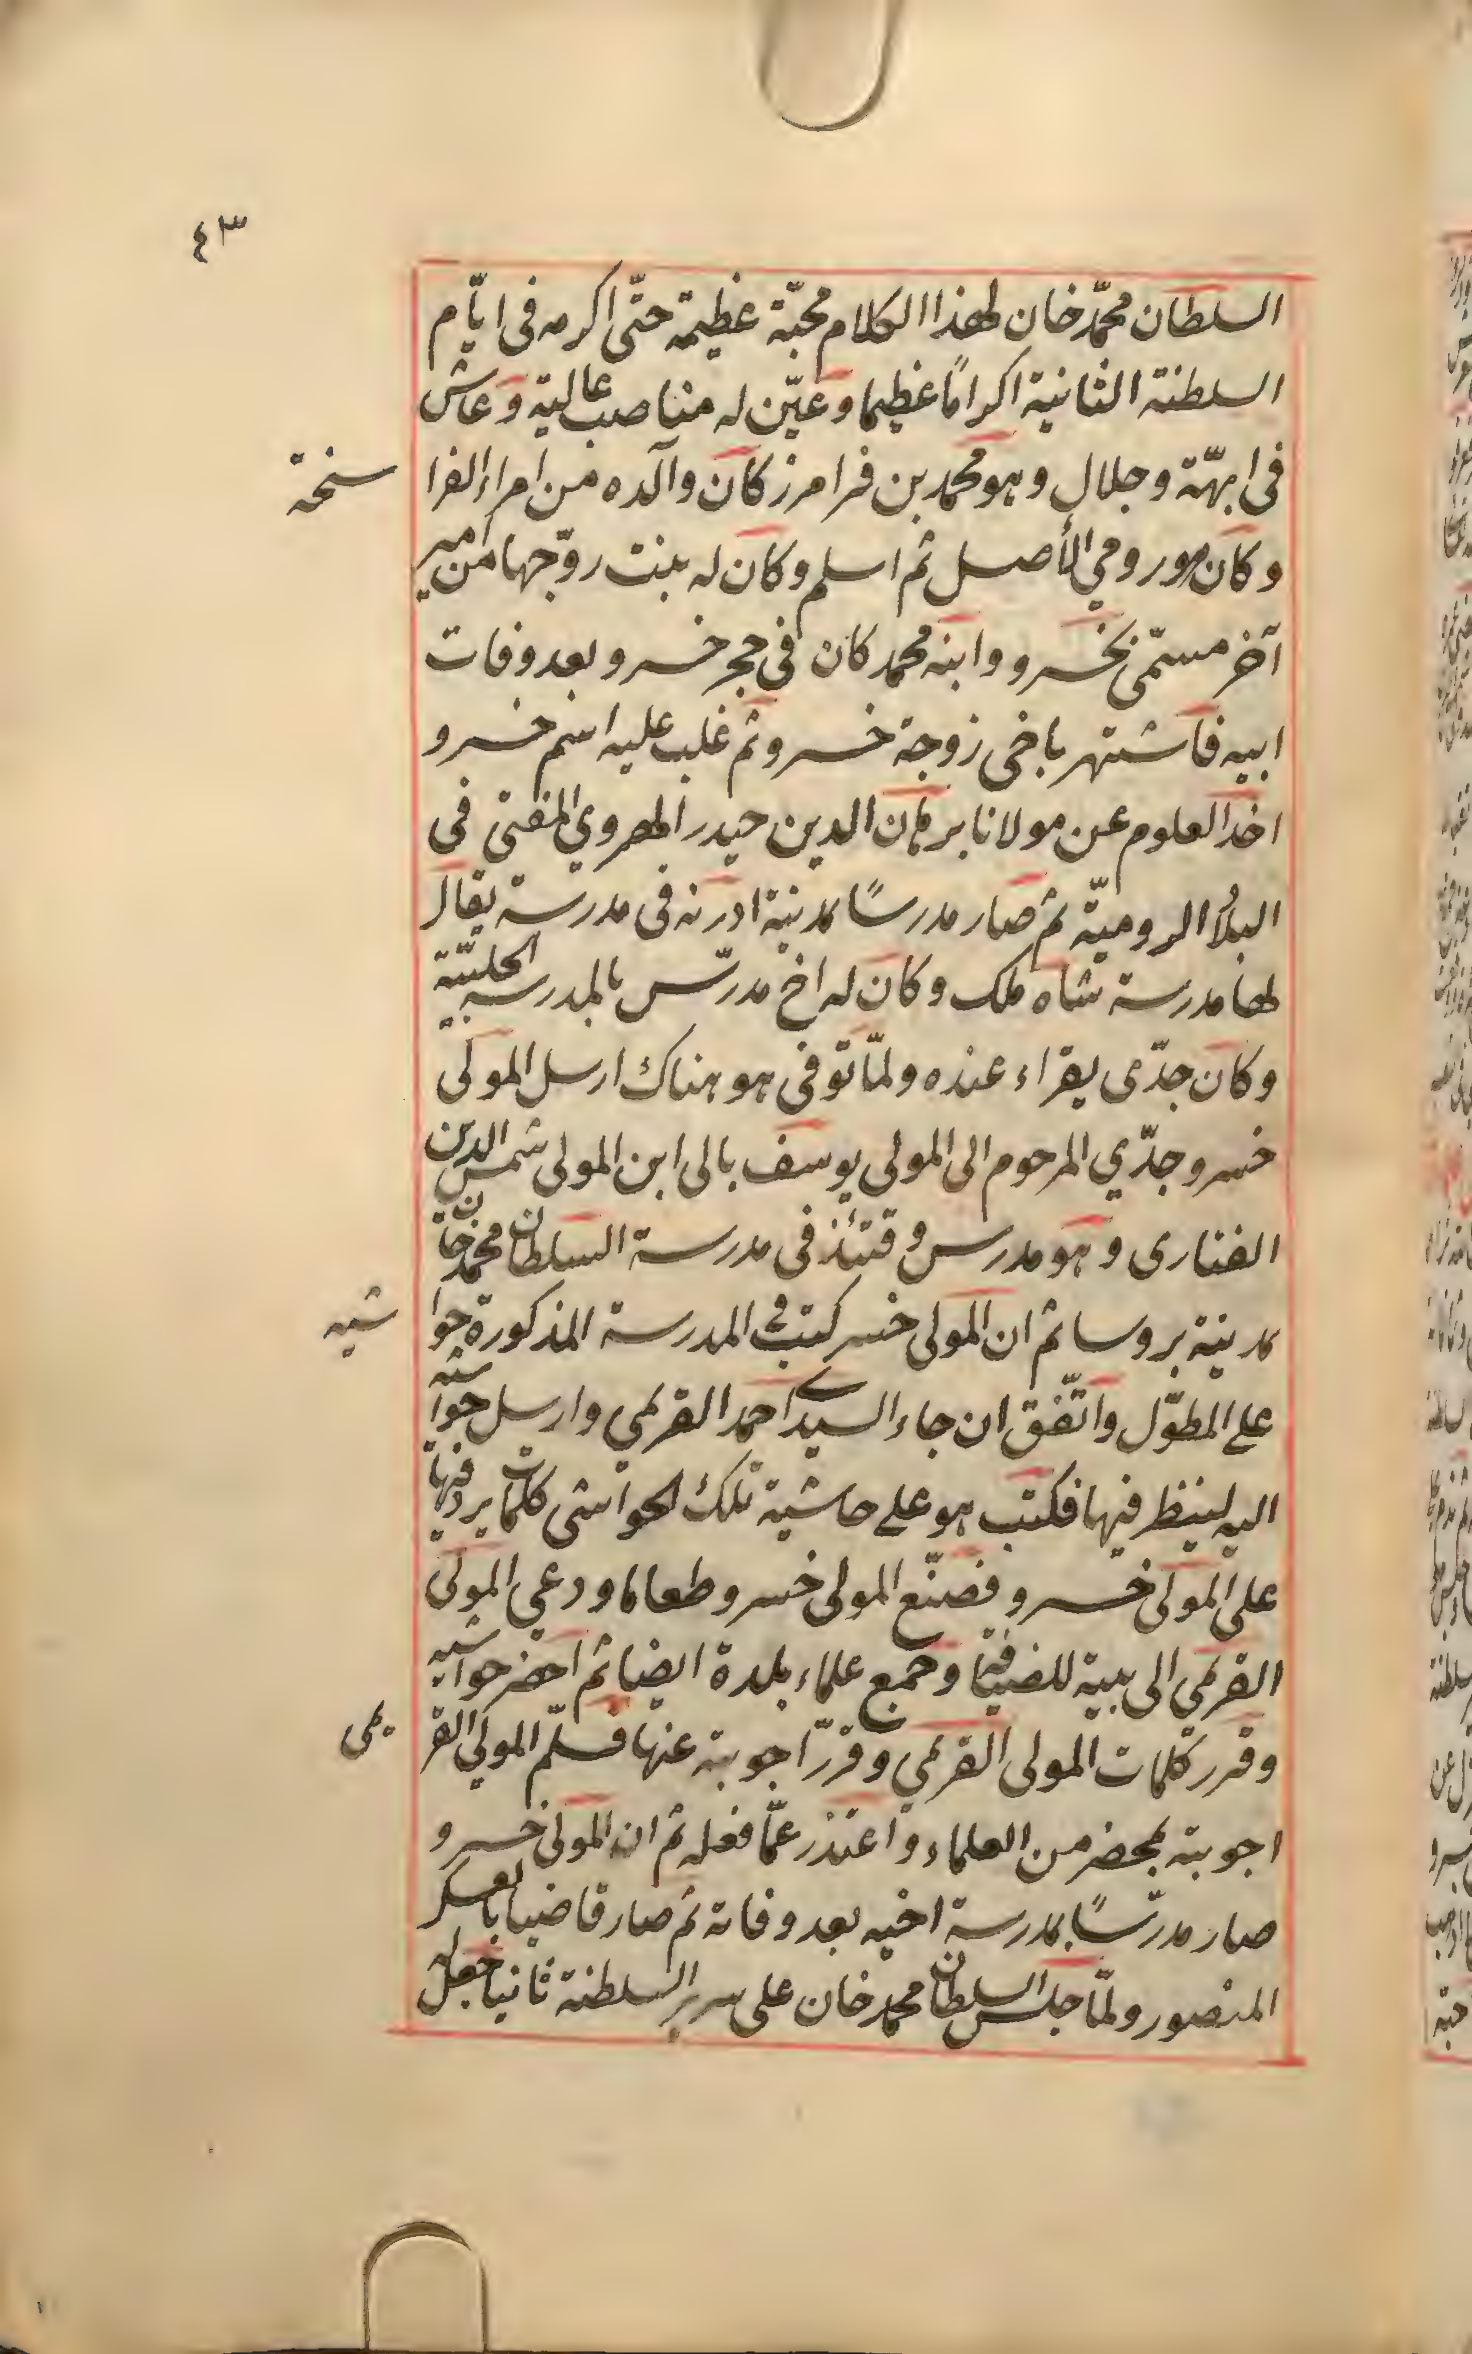 ٤٣
السلطان محمّد خان لهذا الكلام محبّة عظيمة حتّى اكرمه فى ايّام
السلطنة الثانية اكرامًا عظيما وعيّن له مناصب عالية وعاش
فى ابهّة وجلال وهو محمد بن فرامرز كان والده من امراء الفرا سخة
وكان هو رومي الأصل ثم اسلم وكان له بنت زوّجها من امير
آخر مسمّى بخسرو وابنه محمد كان فى حجر خسرو بعد وفات
ابيه فاشتهر باخى زوجة خسرو ثم غلب عليه اسم خسرو
اخذ العلوم عن مولانا برهان الدين حيدر الهروي المفتى فى
البلاد الرومية ثم صار مدرسًا بمدينة ادرنه فى مدرسة يقال
لها مدرسة شاه ملك وكان له اخ مدرّس بالمدرسة الحلبيّة
وكان جدّى يقراء عنده ولمّا توفى هو هناك ارسل المولى
خسرو جدّي المرحوم الى المولى يوسف بالى ابن المولى شمس الدين
الفنارى وهو مدرس وقتئذ فى مدرسة السلطان محمد خان
بمدينة بروسا ثم ان المولى خسر كتب فى المدرسة المذكورة حوا شيه
على المطوّل واتّفق ان جاء السيد احمد القريمي وارسل حواشيه
اليه لينظر فيها فكتب هو على حاشية تلك الحواشى كلمات يرد فيها
على المولى خسرو فصنّع المولى خسرو طعاما ودعي المولى
القريمي الى بيته للضيافة وجمع علماء بلدة ايضا ثم احضر حواشيه
وقرر كلمات المولى القريمي وقرّر اجوبته عنها فسلّم المولى القر يمى
اجوبته بمحضر من العلماء واعتذر عمّا فعله ثم ان المولى خسرو
صار مدرّسًا بمدرسة اخيه بعد وفاته ثم صار قاضيا بالعسكر
المنصور ولمّا جلس السلطان محمد خان على سرير السلطنة ثانيا جعل له